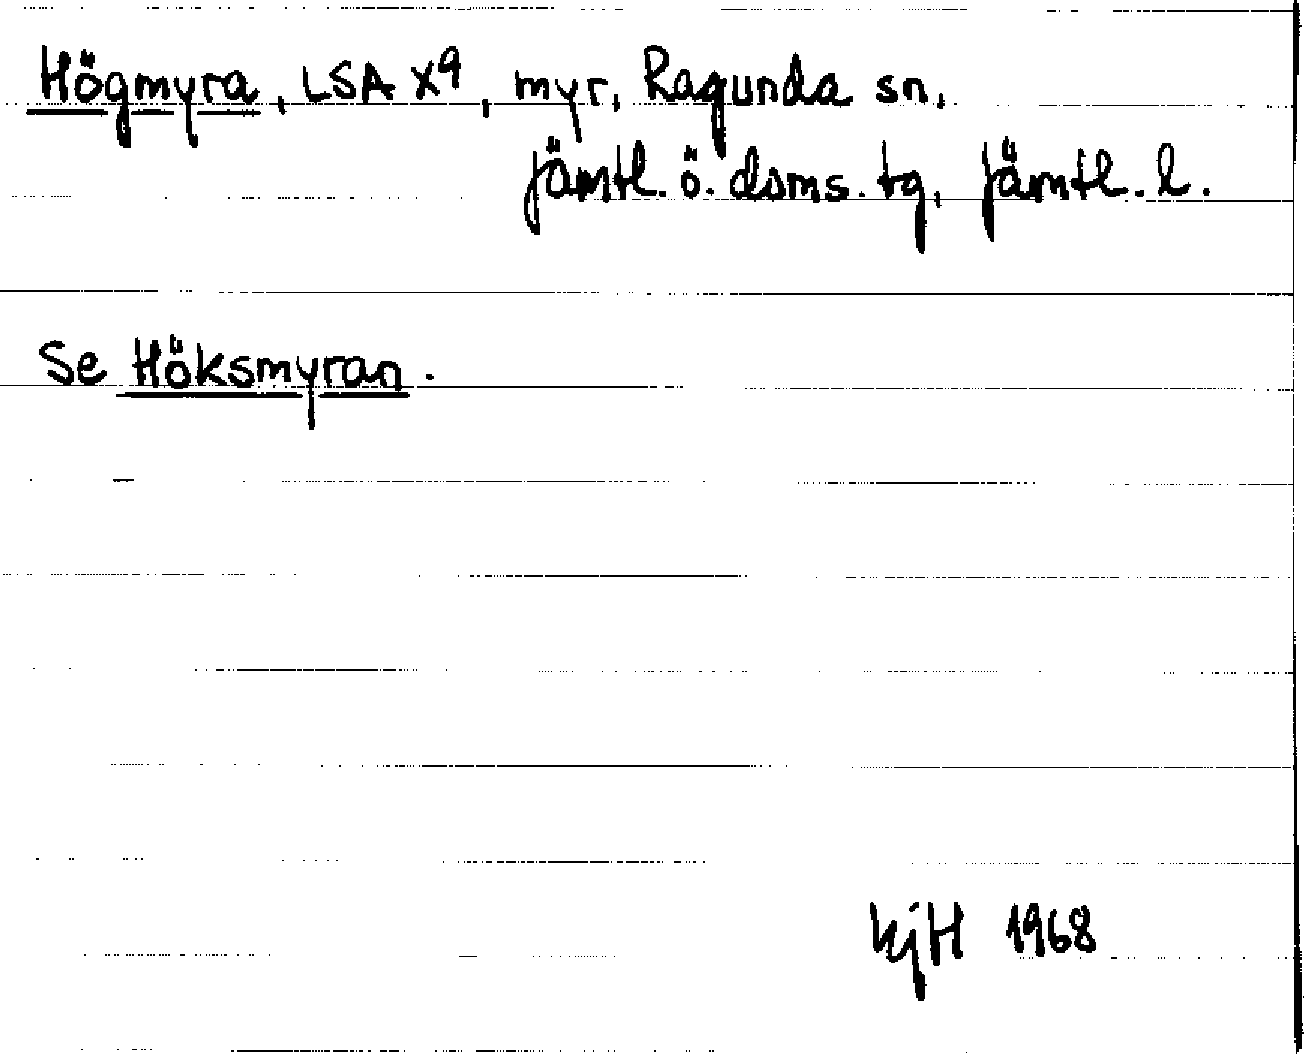 Högmyra, LSA X9, myr, Ragunda sn,
Jämtl. ö. dsms. tg, Jämtl. l.
Se Höksmyran.
KjH 1968